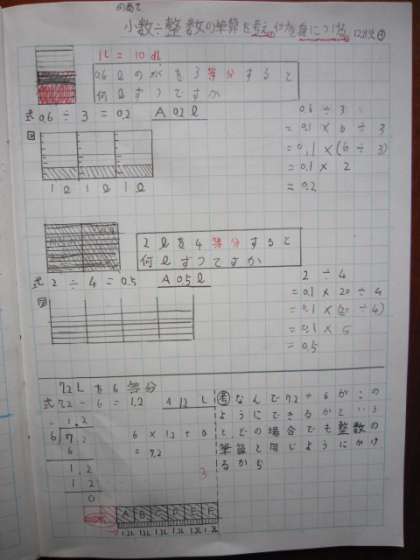 のあて
小数÷整数の計算を考え、力を身につける
1L = 10dL
0.6ℓのかさを3等分すると
何ℓずつですか
式 0.6 ÷ 3 = 0.2 A 0.2ℓ
0.6 ÷ 3
= 0.1 × 6 ÷ 3
= 0.1 × (6 ÷ 3)
= 0.1 × 2
= 0.2
図
1ℓ 1ℓ 1ℓ
2ℓを4等分すると
何ℓずつですか
式 2 ÷ 4 = 0.5 A 0.5ℓ
2 ÷ 4
= 0.1 × 20 ÷ 4
= 0.1 × (20 ÷ 4)
= 0.1 × 5
= 0.5
図
7.2Lを6等分
式 7.2 ÷ 6 = 1.2 A 1.2 L
1.2
6 7.2
6
1.2
1 2
0
6 × 1.2 + 0
= 7.2
考 なんで7.2÷6がこの
ようにできるかという
と、どの場合でも整数の
筆算と同じようにかけ
るから
3
A B C D E F
1.2L 1.2L 1.2L 1.2L 1.2L 1.2L